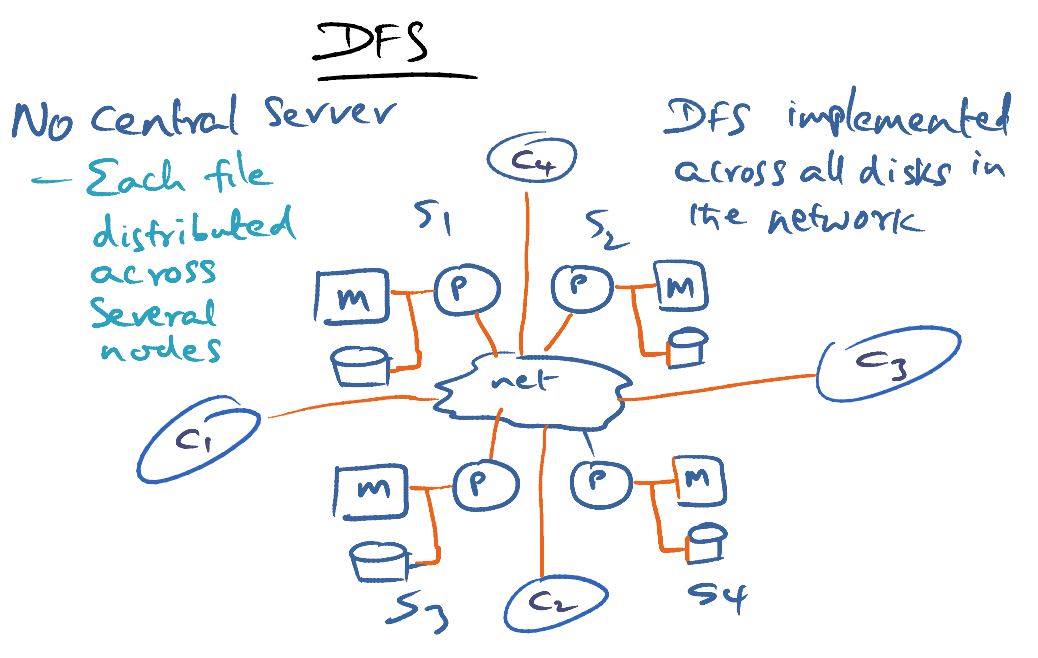 DFS
No central server
— Each file
distributed
across
Several
nodes
DFS implemented
across all disks in
the network
C4
S1
S2
M
P
P
M
net
C3
C1
M
P
P
M
S3
C2
S4